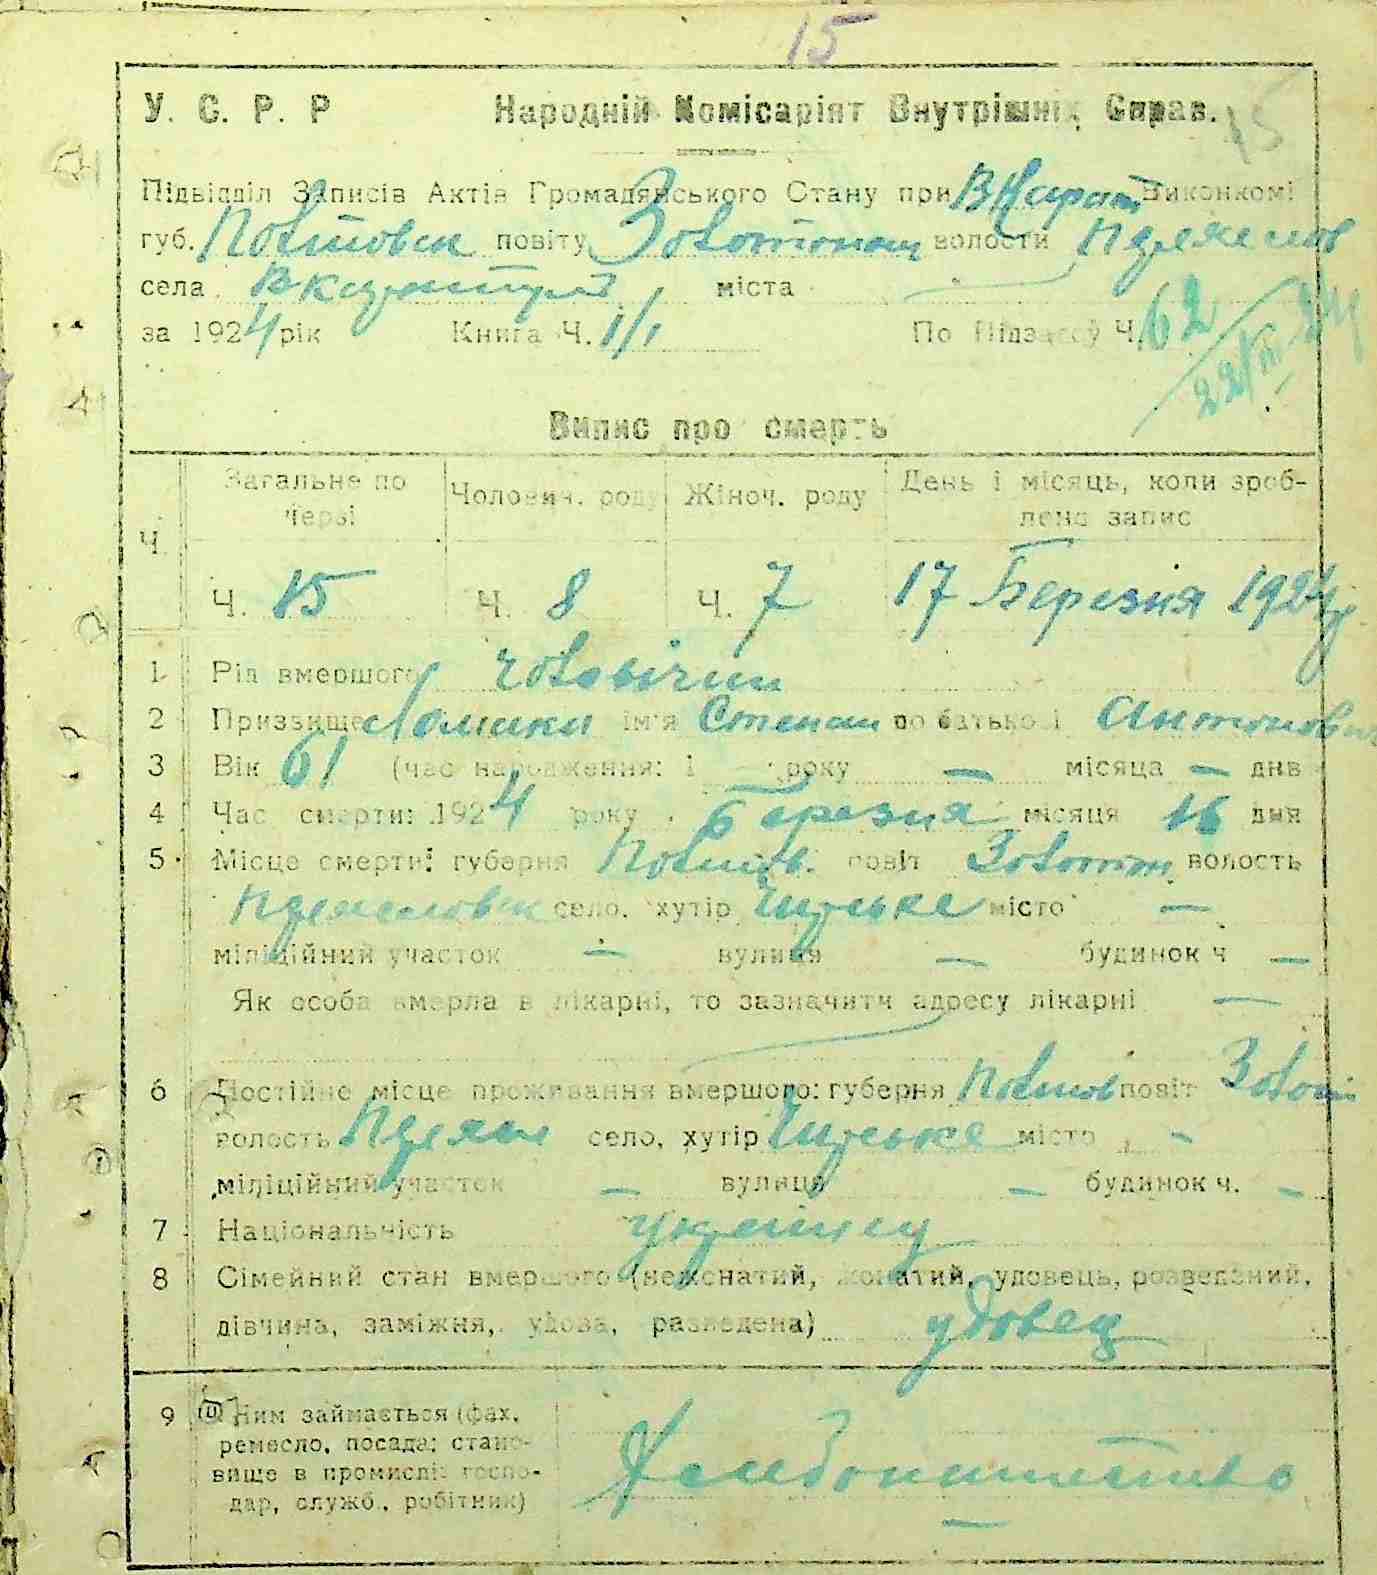 15
У. С. Р. Р Народній Комісаріят Внутрішніх Справ. 15
Підвідділ Записів Актів Громадянського Стану при Виконкомі
губ. Полтовск повіту Золотонош волости
села міста
за 1924 рік Книга Ч. 1/1 По Підзагсу Ч. 62
22/III 24
Випис про смерть
Ч. Загальне по черзі Чоловіч. роду Жіноч. роду День і місяць, коли зроблено запис
Ч. 15 Ч. 8 Ч. 7 17 Березня 1924 р
1 Рід вмершого чоловічий
2 Призвище ім'я Степан по батькові Антонович
3 Вік 61 (час народження: 1 року — місяца — днв
4 Час смерти: 1924 року Березня місяця 16 дня
5 Місце смерти: губерня Полтов. повіт Золотон. волость
село, хутір місто —
міліційний участок — вулиця — будинок ч —
Як особа вмерла в лікарні, то зазначити адресу лікарні —
6 Постійне місце проживання вмершого: губерня Полтов повіт Золотон
волость село, хутір місто -
міліційний участок — вулиця — будинок ч. -
7 Національність українец
8 Сімейний стан вмершого (нежонатий, жонатий, удовець, розведений,
дівчина, заміжня, удова, разведена) удовец
9 Чим займається (фах,
ремесло, посада; стано-
вище в промислі: госпо-
дар, служб., робітник)